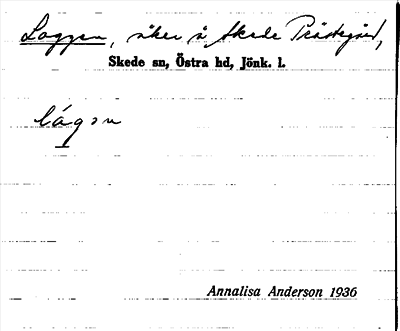 Loggen, åker å Skede Prästgård,
Skede sn, Östra hd, Jönk. l.
lágən
Annalisa Anderson 1936